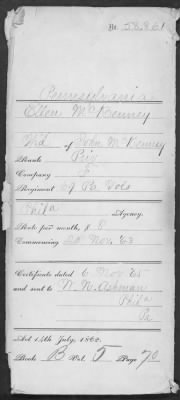 No. 58,861
Pennsylvania
Ellen McKenney
Wid of John McKenney
Rank Priv
Company
Regiment 69 Pa Vols
Phila Agency.
Rate per month, $ 8
Commencing 20 Nov. '63
Certificate dated 6 Nov '65
and sent to W. W. Ashman
Phila
Pa
Act 14th July, 1862.
Book B Vol. 5 Page 70